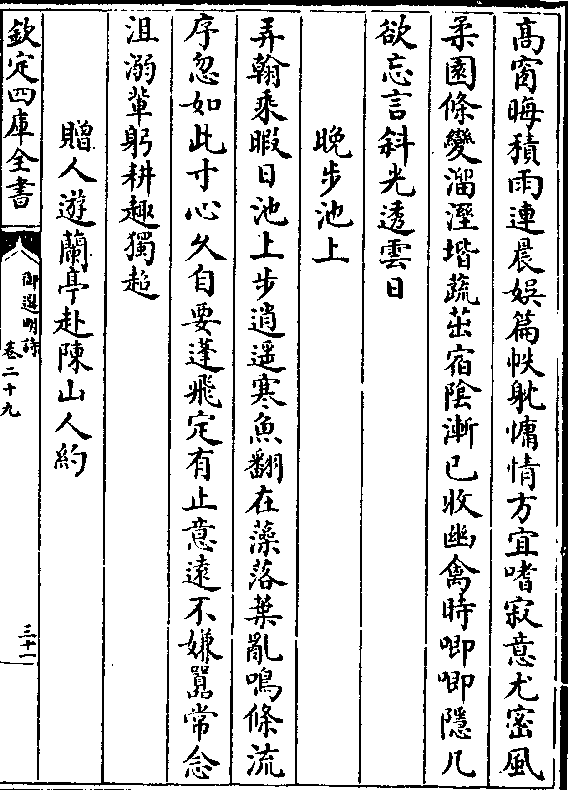 高窗晦積雨連晨娯篇帙躭慵情方宜嗜寂意尤密風
柔園條變溜溼堦蔬茁宿陰漸已收幽禽時唧唧隱几
欲忘言斜光透雲日
晚步池上
弄翰乘暇日池上步逍遥寒魚翻在藻落葉亂鳴條流
序忽如此寸心久自要蓬飛定有止意遠不嫌嚚常念
沮溺輩躬耕趣獨超
贈人遊蘭亭赴陳山人約
欽定四庫全書
御選明詩
卷二十九
三十一